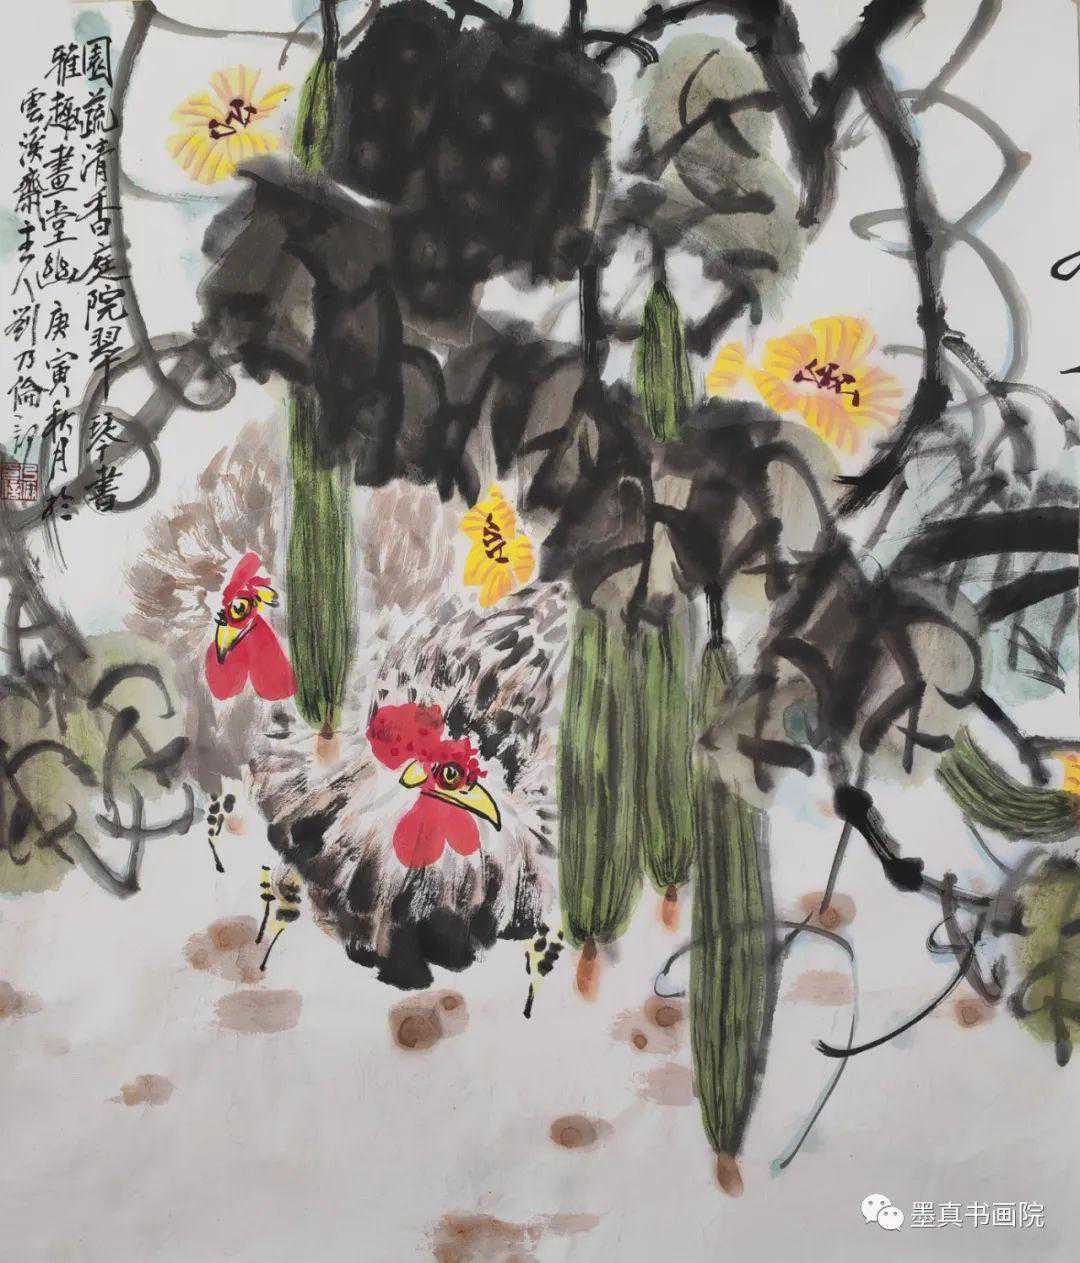 園蔬清香庭院翠琴書
雅趣畫堂幽庚寅秋月於
雲溪齋主人劉乃倫記
墨真书画院